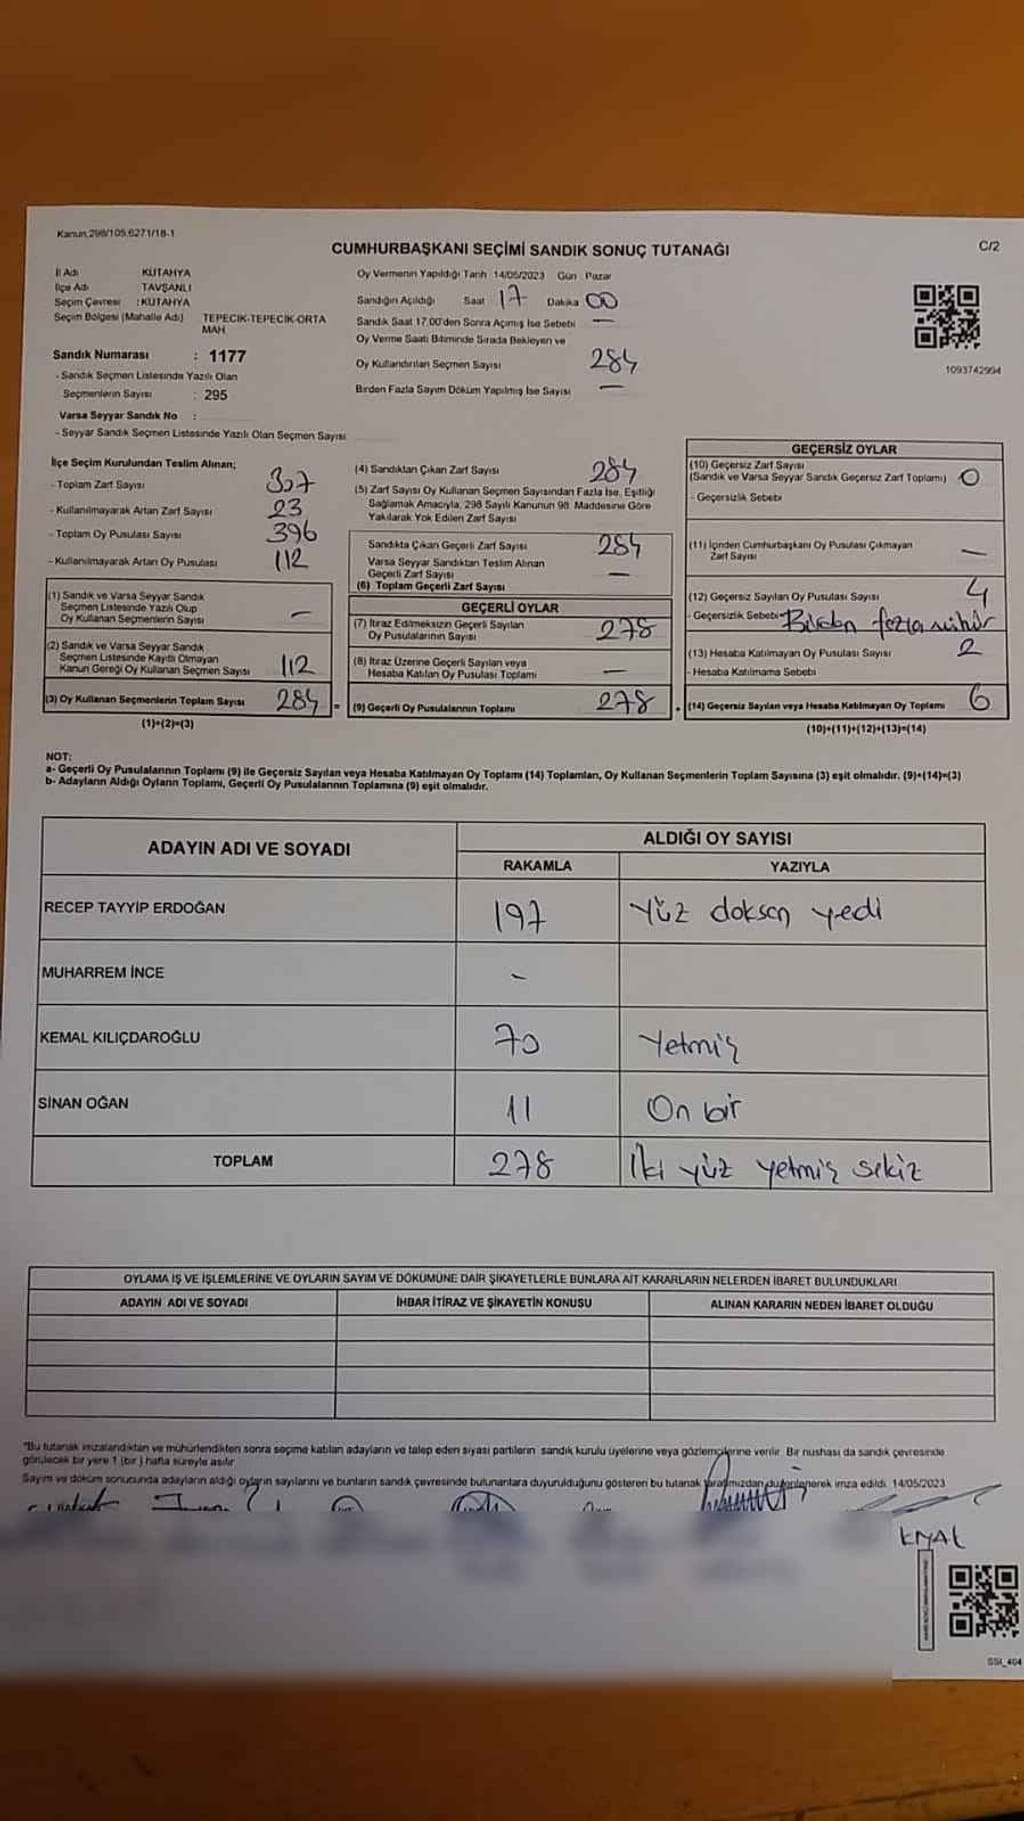 Kanun:298/105,6271/18-1
CUMHURBAŞKANI SEÇİMİ SANDIK SONUÇ TUTANAĞI
C/2
İl Adı KÜTAHYA
İlçe Adı TAVŞANLI
Seçim Çevresi : KÜTAHYA
Seçim Bölgesi (Mahalle Adı) TEPECİK-TEPECİK-ORTA
MAH
Sandık Numarası : 1177
- Sandık Seçmen Listesinde Yazılı Olan
Seçmenlerin Sayısı : 295
Varsa Seyyar Sandık No :
- Seyyar Sandık Seçmen Listesinde Yazılı Olan Seçmen Sayısı
Oy Vermenin Yapıldığı Tarih 14/05/2023 Gün Pazar
Sandığın Açıldığı Saat 17 Dakika 00
Sandık Saat 17.00'den Sonra Açımış İse Sebebi —
Oy Verme Saati Bitiminde Sırada Bekleyen ve
Oy Kullandırılan Seçmen Sayısı 284
Birden Fazla Sayım Döküm Yapılmış İse Sayısı —
1093742994
İlçe Seçim Kurulundan Teslim Alınan;
- Toplam Zarf Sayısı 307
- Kullanılmayarak Artan Zarf Sayısı 23
- Toplam Oy Pusulası Sayısı 396
- Kullanılmayarak Artan Oy Pusulası 112
(1) Sandık ve Varsa Seyyar Sandık
Seçmen Listesinde Yazılı Olup
Oy Kullanan Seçmenlerin Sayısı –
(2) Sandık ve Varsa Seyyar Sandık
Seçmen Listesinde Kayıtlı Olmayan
Kanun Gereği Oy Kullanan Seçmen Sayısı 112
(3) Oy Kullanan Seçmenlerin Toplam Sayısı 284 =
(1)+(2)=(3)
(4) Sandıktan Çıkan Zarf Sayısı 284
(5) Zarf Sayısı Oy Kullanan Seçmen Sayısından Fazla İse, Eşitliği
Sağlamak Amacıyla, 298 Sayılı Kanunun 98. Maddesine Göre
Yakılarak Yok Edilen Zarf Sayısı
Sandıkta Çıkan Geçerli Zarf Sayısı 284
Varsa Seyyar Sandıktan Teslim Alınan
Geçerli Zarf Sayısı —
(6) Toplam Geçerli Zarf Sayısı
GEÇERLİ OYLAR
(7) İtiraz Edilmeksizin Geçerli Sayılan
Oy Pusulalarının Sayısı 278
(8) İtiraz Üzerine Geçerli Sayılan veya
Hesaba Katılan Oy Pusulası Toplamı —
(9) Geçerli Oy Pusulalarının Toplamı 278
GEÇERSİZ OYLAR
(10) Geçersiz Zarf Sayısı
(Sandık ve Varsa Seyyar Sandık Geçersiz Zarf Toplamı) 0
- Geçersizlik Sebebi
(11) İçinden Cumhurbaşkanı Oy Pusulası Çıkmayan
Zarf Sayısı —
(12) Geçersiz Sayılan Oy Pusulası Sayısı 4
- Geçersizlik Sebebi Birden fazla mühür
(13) Hesaba Katılmayan Oy Pusulası Sayısı 2
- Hesaba Katılmama Sebebi
(14) Geçersiz Sayılan veya Hesaba Katılmayan Oy Toplamı 6
(10)+(11)+(12)+(13)=(14)
NOT:
a- Geçerli Oy Pusulalarının Toplamı (9) ile Geçersiz Sayılan veya Hesaba Katılmayan Oy Toplamı (14) Toplamları, Oy Kullanan Seçmenlerin Toplam Sayısına (3) eşit olmalıdır. (9)+(14)=(3)
b- Adayların Aldığı Oyların Toplamı, Geçerli Oy Pusulalarının Toplamına (9) eşit olmalıdır.
ADAYIN ADI VE SOYADI
ALDIĞI OY SAYISI
RAKAMLA YAZIYLA
RECEP TAYYİP ERDOĞAN 197 Yüz doksan yedi
MUHARREM İNCE -
KEMAL KILIÇDAROĞLU 70 Yetmiş
SİNAN OĞAN 11 On bir
TOPLAM 278 İki yüz yetmiş sekiz
OYLAMA İŞ VE İŞLEMLERİNE VE OYLARIN SAYIM VE DÖKÜMÜNE DAİR ŞİKAYETLERLE BUNLARA AİT KARARLARIN NELERDEN İBARET BULUNDUKLARI
ADAYIN ADI VE SOYADI İHBAR İTİRAZ VE ŞİKAYETİN KONUSU ALINAN KARARIN NEDEN İBARET OLDUĞU
"Bu tutanak imzalandıktan ve mühürlendikten sonra seçime katılan adayların ve talep eden siyasi partilerin sandık kurulu üyelerine veya gözlemcilerine verilir. Bir nushası da sandık çevresinde
görülecek bir yere 1 (bir) hafta süreyle asılır
Sayım ve döküm sonucunda adayların aldığı oyların sayılarını ve bunların sandık çevresinde bulunanlara duyurulduğunu gösteren bu tutanak tarafımızdan düzenlenerek imza edildi. 14/05/2023
SSI_404